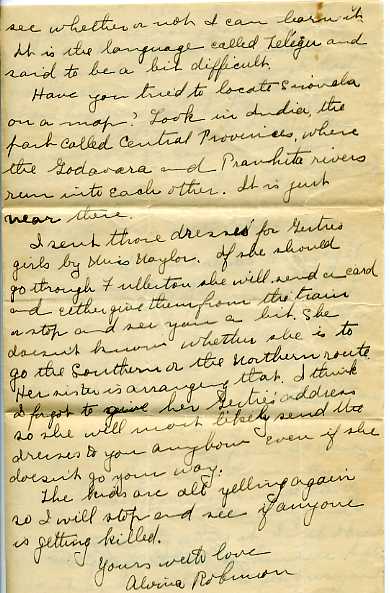 see whether or not I can learn it.
It is the language called Telegu and
said to be a bit difficult.
Have you tried to locate Sironcha
on a map? Look in India, the
part called Central Provinces, where
the Godavara and Pranhita rivers
run into each other. It is just
near there.
I sent those dresses for Gertie's
girls by Miss Naylor. If she should
go through Fullerton she will send a card
and either give them from the train
or stop and see you a bit. She
doesn't know whether she is to
go the Southern or the Northern route.
Her sister is arranging that. I think
I forgot to give her Gertie's address
so she will most likely send the
dresses to you anyhow even if she
doesn't go your way.
The kids are all yelling again
so I will stop and see if anyone
is getting killed.
Yours with love
Alvina Robinson